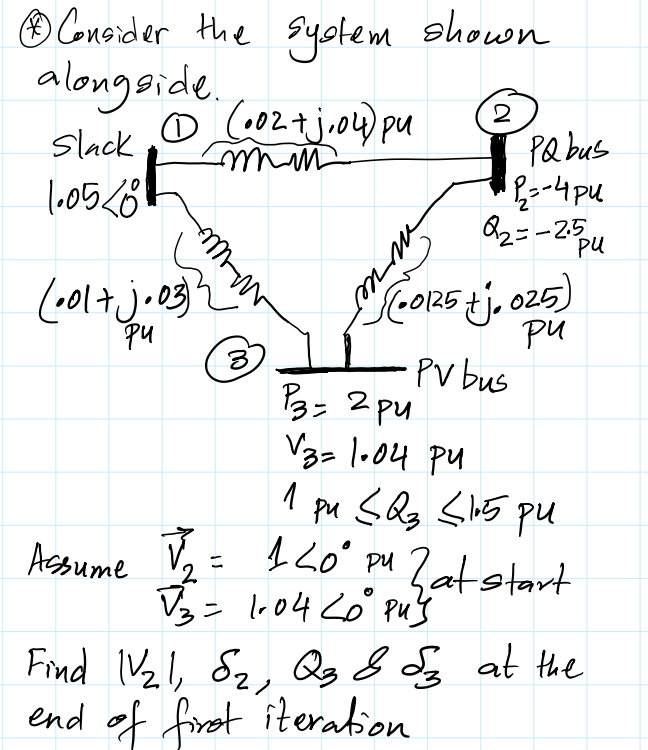 * Consider the system shown
alongside.
① (.02+j.04) pu
②
Slack
1.05<0°
PQ bus
P₂=-4 pu
Q₂=-2.5 pu
(.01+j.03) pu
(.0125+j.025) pu
③
PV bus
P₃= 2 pu
V₃= 1.04 pu
1 pu ≤ Q₃ ≤ 1.5 pu
Assume V⃗₂ = 1<0° pu } at start
V⃗₃ = 1.04<0° pu
Find |V₂|, δ₂, Q₃ & δ₃ at the
end of first iteration